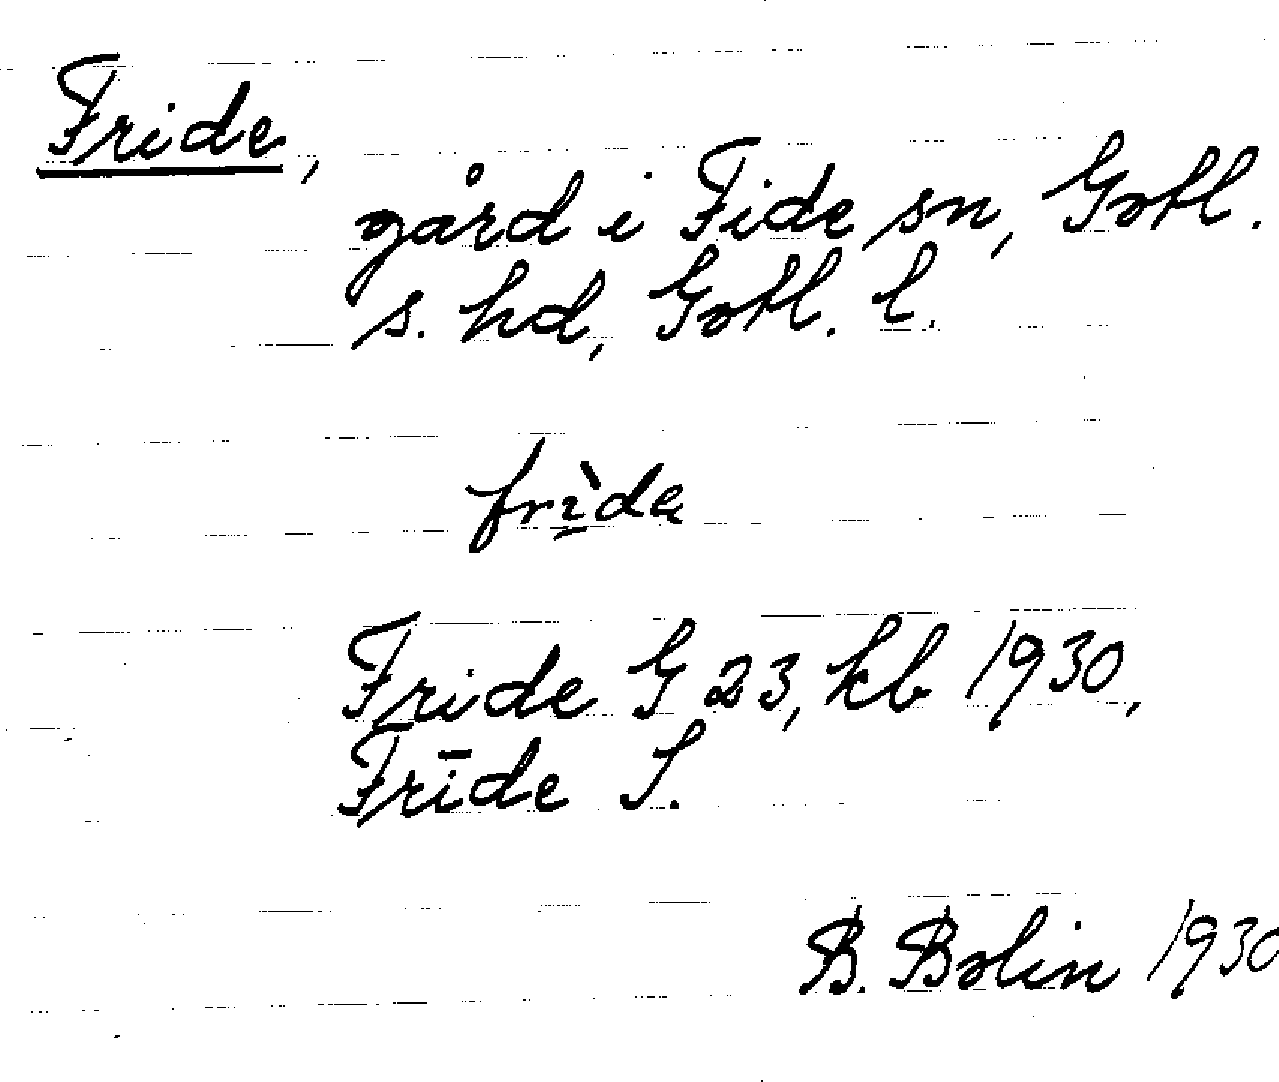 Fride,
gård i Fide sn, Gotl.
s. hd, Gotl. l.
frìde
Fride G 23, kb 1930,
Frīde S.
B. Bolin 1930